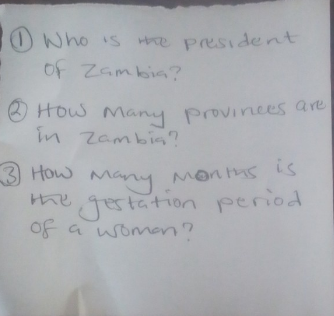 ① Who is the president
of Zambia?
② How many provinces are
in Zambia?
③ How many months is
the gestation period
of a woman?